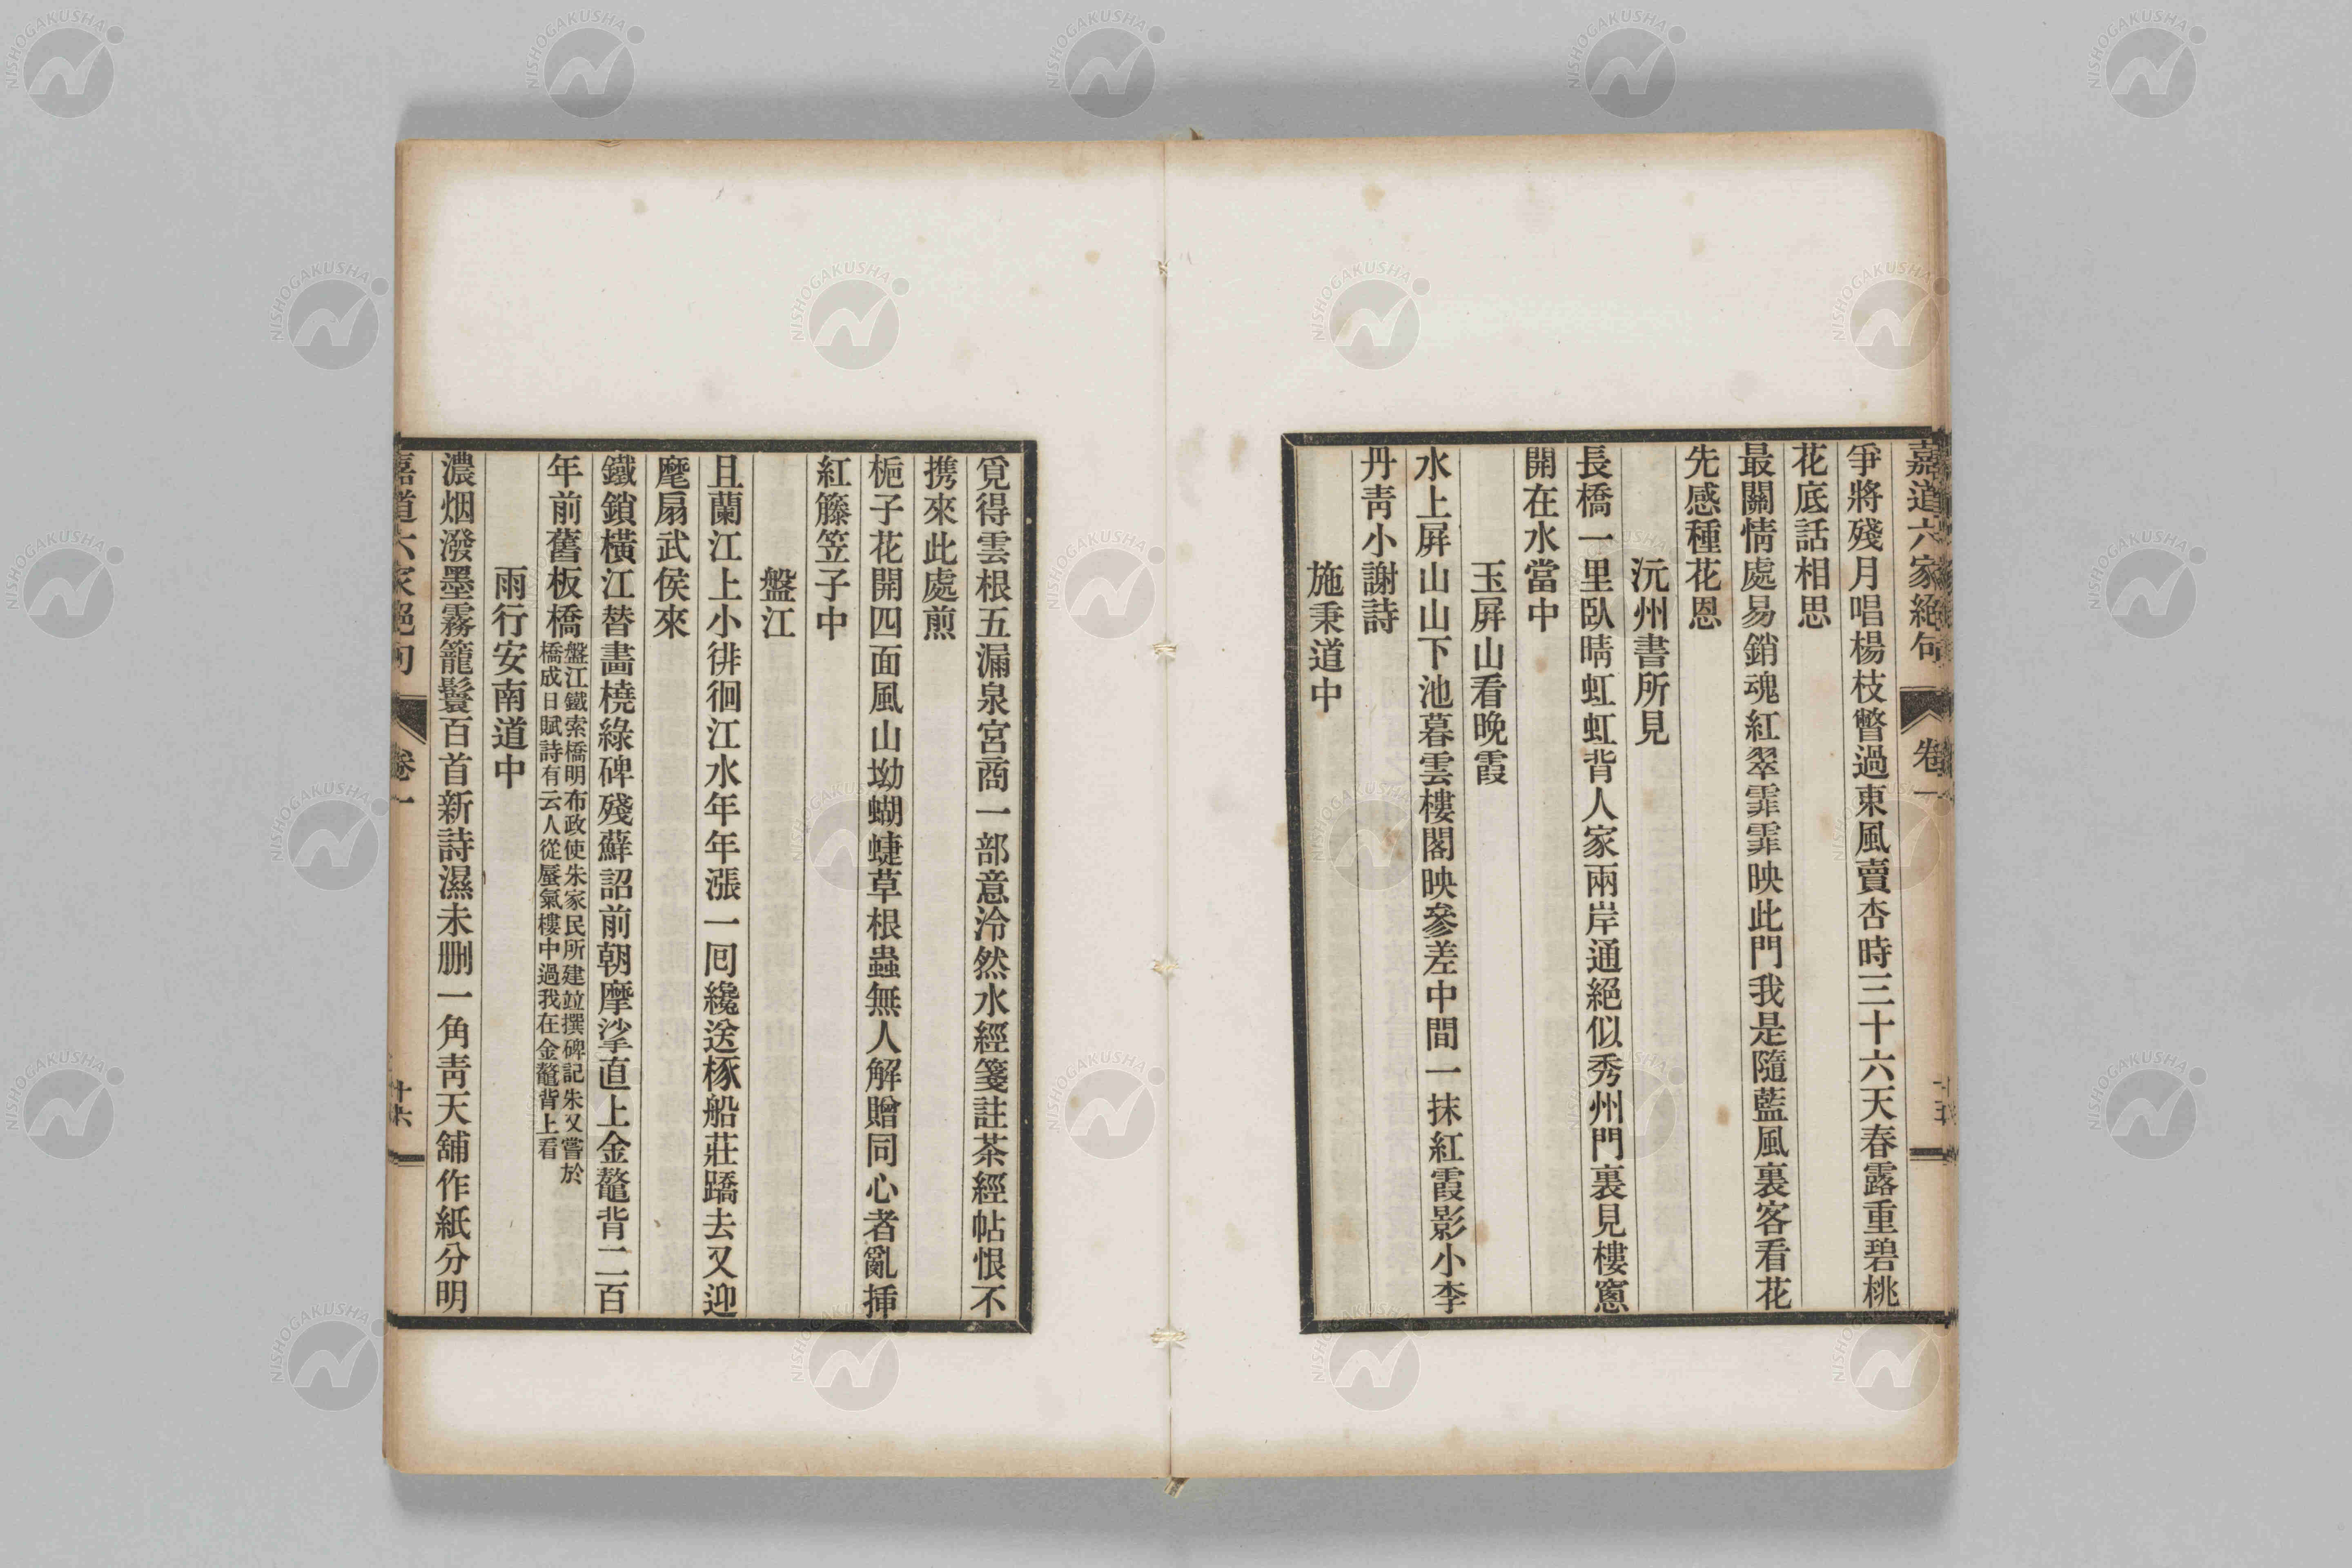 嘉道六家絕句 卷一
爭將殘月唱楊枝瞥過東風賣杏時三十六天春露重碧桃
花底話相思
最關情處易銷魂紅翠霏霏映此門我是隨藍風裏客看花
先感種花恩
沅州書所見
長橋一里臥晴虹虹背人家兩岸通絕似秀州門裏見樓窻
開在水當中
玉屛山看晚霞
水上屛山山下池暮雲樓閣映參差中間一抹紅霞影小李
丹靑小謝詩
施秉道中
覓得雲根五漏泉宮商一部意泠然水經箋註茶經帖恨不
携來此處煎
梔子花開四面風山坳蝴蜨草根蟲無人解贈同心者亂挿
紅籐笠子中
盤江
且蘭江上小徘徊江水年年漲一回纔送椓船莊蹻去又迎
麾扇武侯來
鐵鎖橫江替畫橈綠碑殘蘚詔前朝摩挲直上金鼇背二百
年前舊板橋
盤江鐵索橋明布政使朱家民所建竝撰碑記朱又嘗於
橋成日賦詩有云人從蜃氣樓中過我在金鼇背上看
雨行安南道中
濃烟潑墨霧籠鬟百首新詩濕未删一角靑天舖作紙分明
嘉道六家絕句 卷一 十六
NISHOGAKUSHA